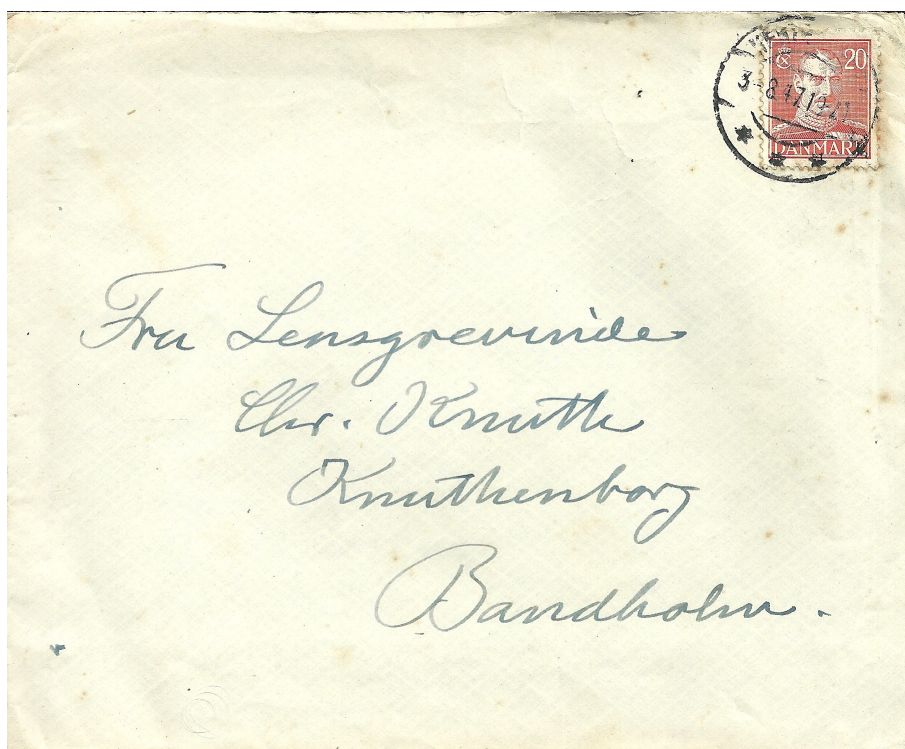 20
3-8.47.19-21
DANMARK
Fru Lensgrevinde
Chr. Knuth
Knuthenborg
Bandholm.